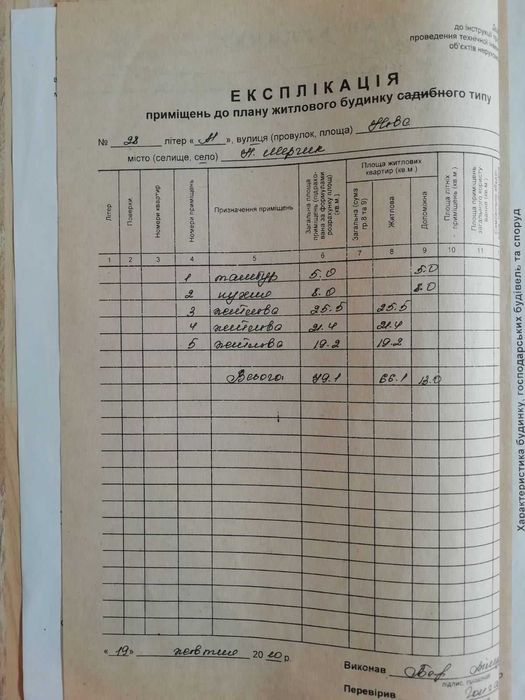 до інструкції
проведення технічної
об'єктів
ЕКСПЛІКАЦІЯ
приміщень до плану житлового будинку садибного типу
№ 28 літер « А », вулиця (провулок, площа) Нова
місто (селище, село) Н. Мерчик
Літер
Поверхи
Номери квартир
Номери приміщень
Призначення приміщень
Загальна площа приміщень (підрахована за формулами розрахунку площ) (кв.м.)
Площа житлових квартир (кв.м.)
Загальна (сума гр.8 та 9)
Житлова
Допоміжна
Площа літніх приміщень (кв.м.)
Площа приміщень загального користування (кв.м.)
1 2 3 4 5 6 7 8 9 10 11
1 тамбур 5.0 5.0
2 кухня 8.0 8.0
3 житлова 25.5 25.5
4 житлова 21.4 21.4
5 житлова 19.2 19.2
Всього: 79.1 66.1 13.0
« 19 » жовтня 20 10 р.
Виконав
підпис, прізвище
Перевірив
Характеристика будинку, господарських будівель та споруд